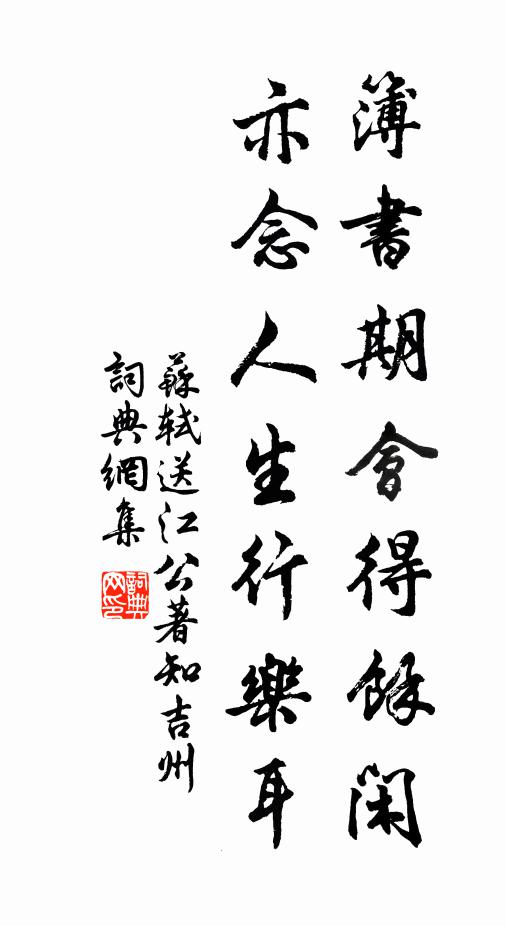 簿書期會得餘閑
亦念人生行樂耳
蘇軾送江公著知吉州
詞典網集
詞典
网印